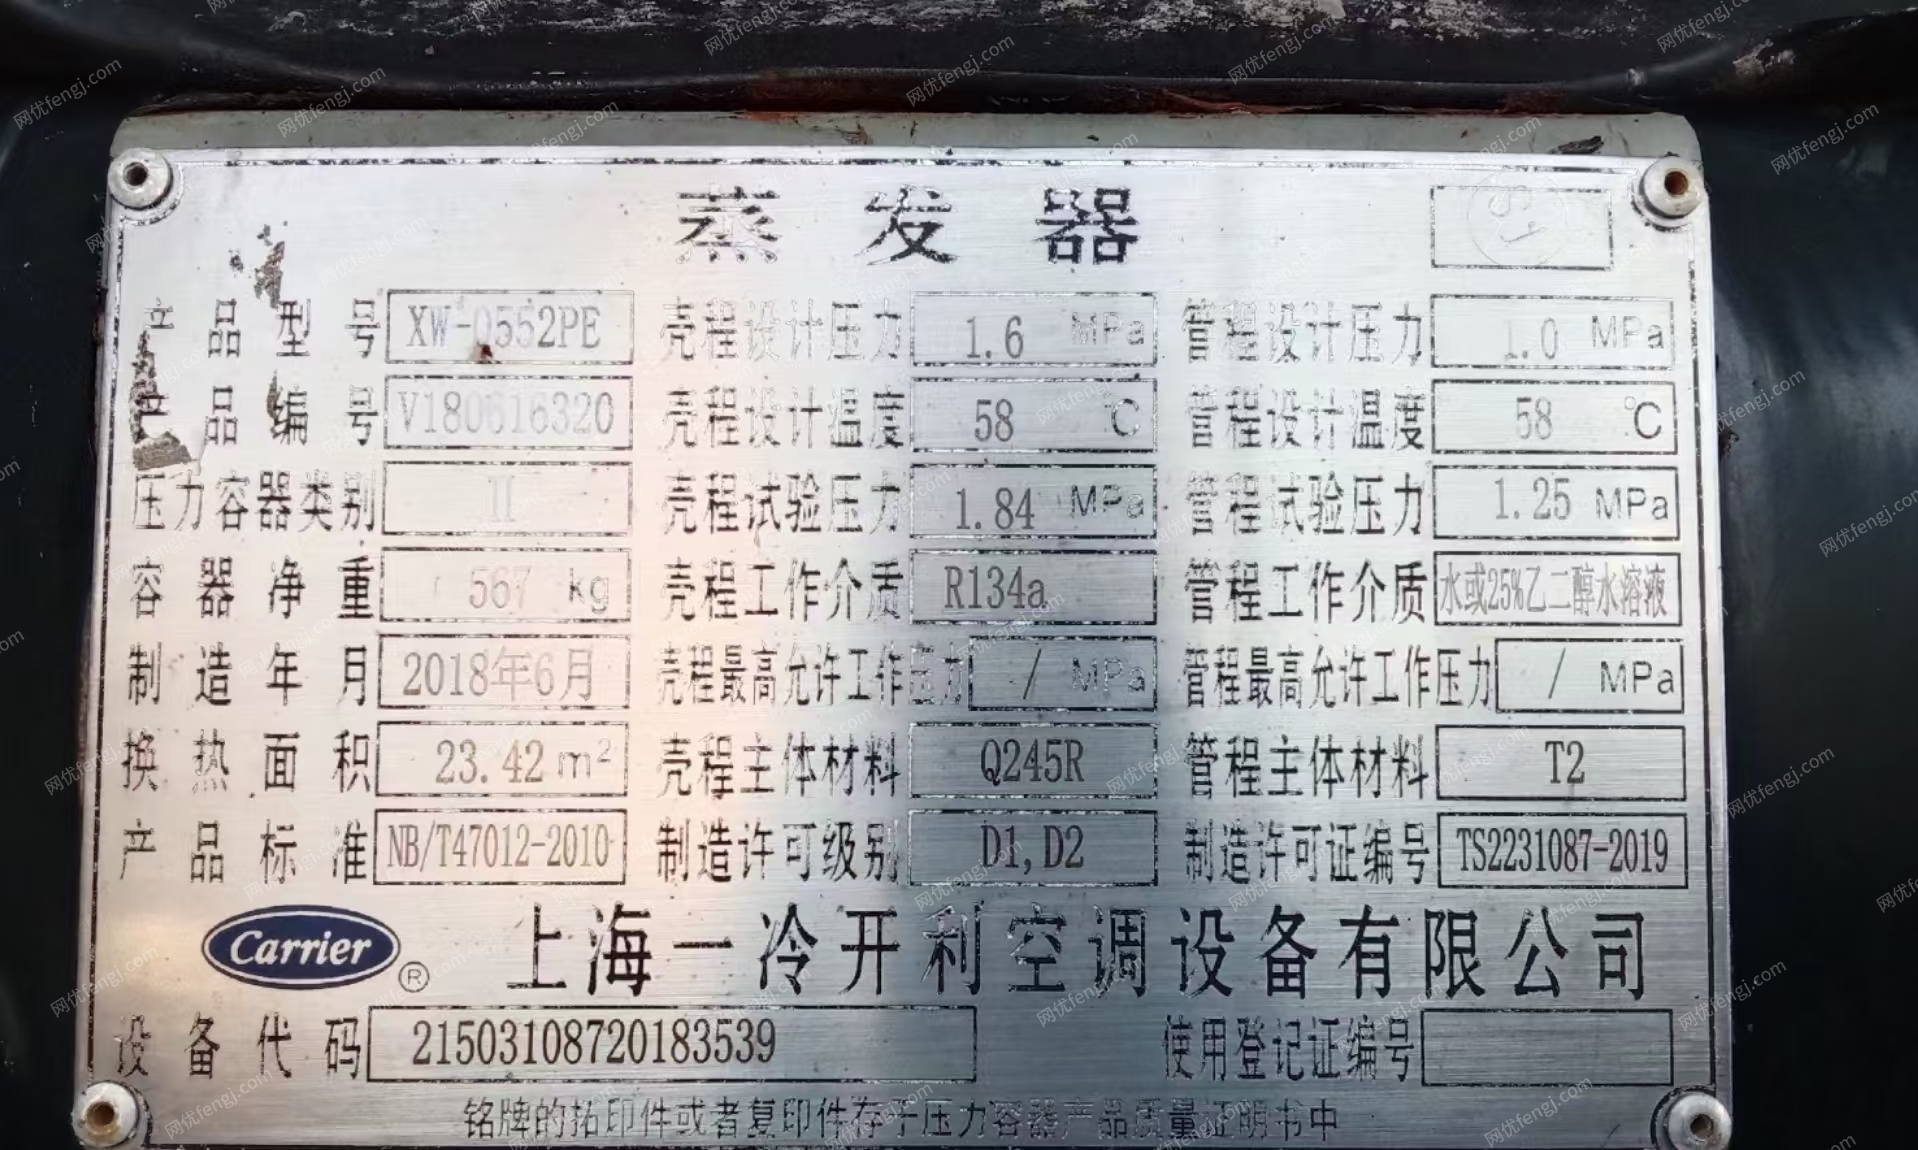 蒸发器
产品型号 XW-0552PE 壳程设计压力 1.6 MPa 管程设计压力 1.0 MPa
产品编号 V180616320 壳程设计温度 58 ℃ 管程设计温度 58 ℃
压力容器类别 II 壳程试验压力 1.84 MPa 管程试验压力 1.25 MPa
容器净重 567 kg 壳程工作介质 R134a 管程工作介质 水或25%乙二醇水溶液
制造年月 2018年6月 壳程最高允许工作压力 / MPa 管程最高允许工作压力 / MPa
换热面积 23.42 m² 壳程主体材料 Q245R 管程主体材料 T2
产品标准 NB/T47012-2010 制造许可级别 D1,D2 制造许可证编号 TS2231087-2019
Carrier ® 上海一冷开利空调设备有限公司
设备代码 21503108720183539 使用登记证编号
铭牌的拓印件或者复印件存于压力容器产品质量证明书中
网优fengj.com